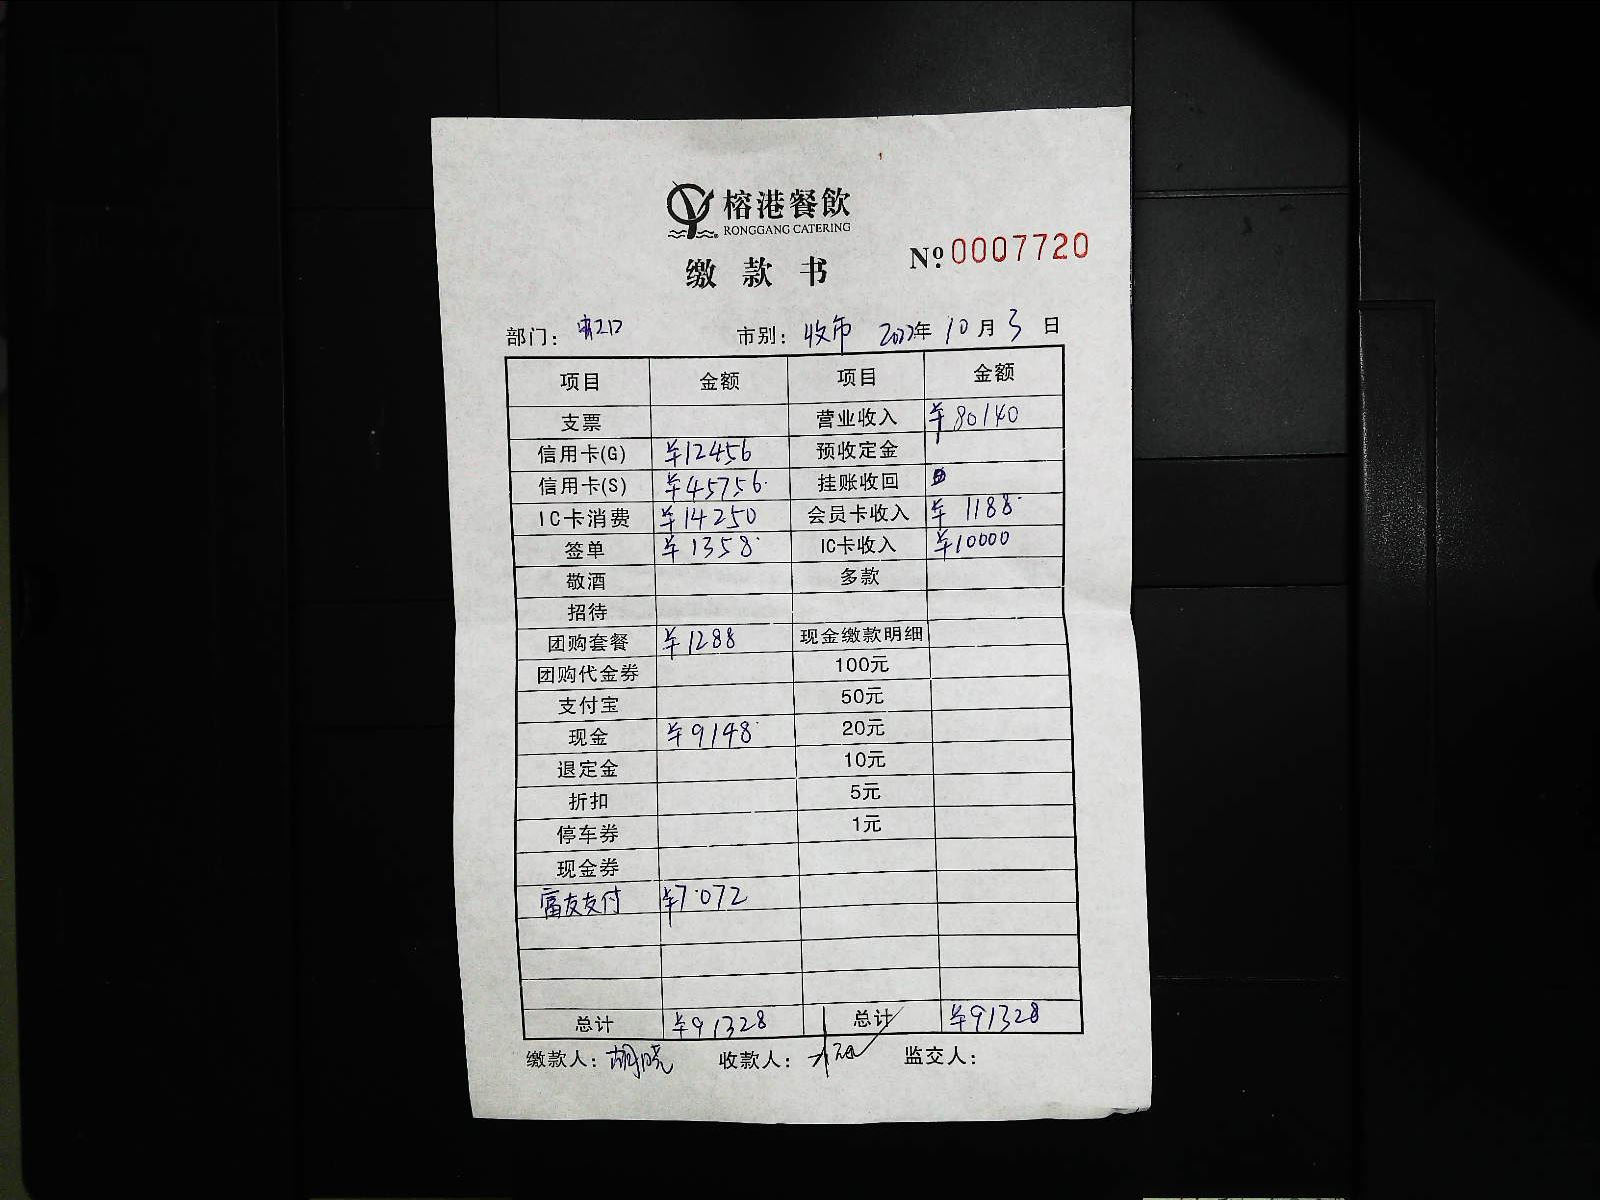 榕港餐飲
RONGGANG CATERING
缴款书
Nº 0007720
部门： 市别：收市 2022年10月3日
项目 金额 项目 金额
支票 营业收入 ¥80140
信用卡(G) ¥12456 预收定金
信用卡(S) ¥45756 挂账收回
IC卡消费 ¥14250 会员卡收入 ¥1188
签单 ¥1358 IC卡收入 ¥10000
敬酒 多款
招待
团购套餐 ¥1288 现金缴款明细
团购代金券 100元
支付宝 50元
现金 ¥9148 20元
退定金 10元
折扣 5元
停车券 1元
现金券
富友支付 ¥7072
总计 ¥91328 总计 ¥91328
缴款人：胡晓 收款人： 监交人：